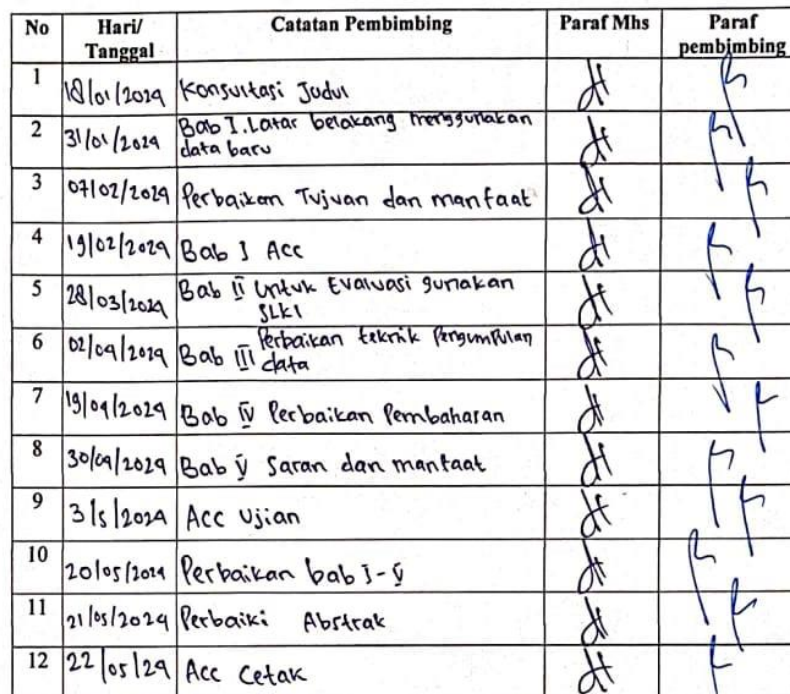 No Hari/ Tanggal Catatan Pembimbing Paraf Mhs Paraf pembimbing
1 18/01/2024 Konsultasi Judul
2 31/01/2024 Bab I. Latar belakang menggunakan
data baru
3 07/02/2024 Perbaikan Tujuan dan manfaat
4 19/02/2024 Bab I Acc
5 28/03/2024 Bab II Untuk Evaluasi gunakan
SLKI
6 02/04/2024 Bab III Perbaikan teknik Pengumpulan
data
7 19/04/2024 Bab IV Perbaikan Pembahasan
8 30/04/2024 Bab V Saran dan manfaat
9 3/5/2024 Acc Ujian
10 20/05/2024 Perbaikan bab I-V
11 21/05/2024 Perbaiki Abstrak
12 22/05/24 Acc Cetak